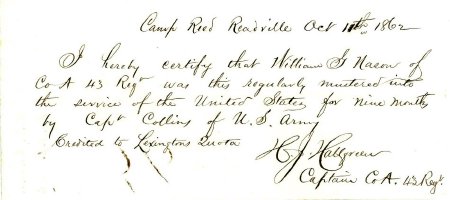 Camp Reed Readville Oct 11th 1862
I hereby certify that William G Nason of
Co A 43 Regt was this regularly mustered into
the service of the United States for nine months
by Capt Collins of U. S. Army
Credited to Lexingtons Quota
H. J. Hallgreen
Captain Co A. 43 Regt.